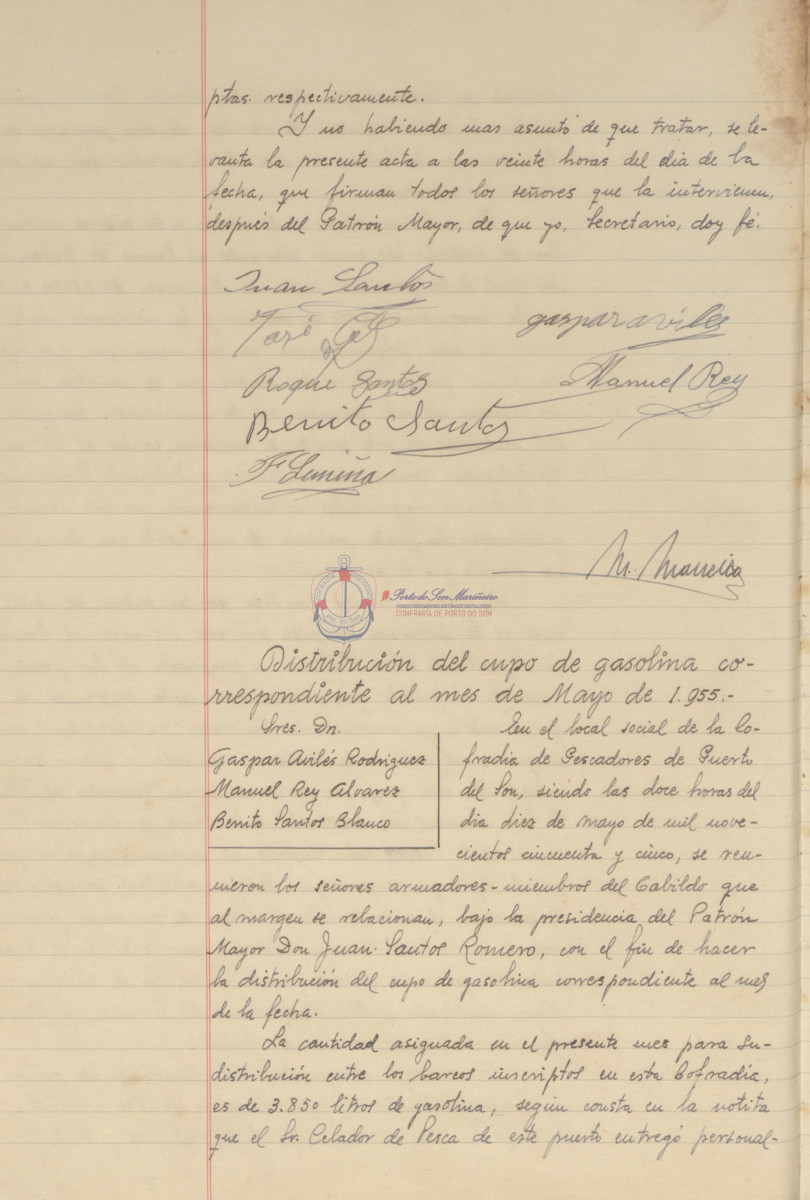 ptas. respectivamente.
Y no habiendo mas asunto de que tratar, se le-
vanta la presente acta a las veinte horas del dia de la
fecha, que firman todos los señores que la intervienen,
después del Patrón Mayor, de que yo, Secretario, doy fé.
Juan Santos
José
gaspar aviles
Roque Santos
Manuel Rey
Benito Santos
M.
Porto do Son Mariñeiro
CONFRARÍA DE PORTO DO SON
Distribución del cupo de gasolina co-
rrespondiente al mes de Mayo de 1.955.-
Sres. Dn.
Gaspar Avilés Rodriguez
Manuel Rey Alvarez
Benito Santos Blanco
En el local social de la Co-
fradia de Pescadores de Puerto
del Son, siendo las doce horas del
dia diez de mayo de mil nove-
cientos cincuenta y cinco, se reu-
nieron los señores armadores-miembros del Cabildo que
al margen se relacionan, bajo la presidencia del Patrón
Mayor Don Juan Santos Romero, con el fin de hacer
la distribución del cupo de gasolina correspondiente al mes
de la fecha.
La cantidad asignada en el presente mes para su
distribución entre los barcos inscriptos en esta Cofradía,
es de 3.850 litros de gasolina, según consta en la notita
que el Sr. Celador de Pesca de este puerto entregó personal-